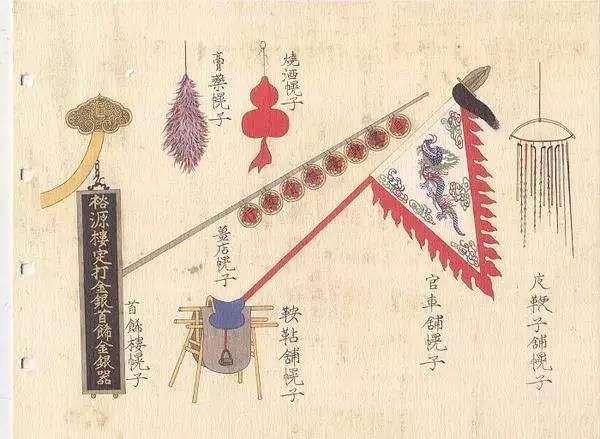 膏藥幌子
燒酒幌子
裕源樓定打金銀首飾金銀器
首飾樓幌子
薑店幌子
鞍鞊舖幌子
官車舖幌子
皮鞭子舖幌子